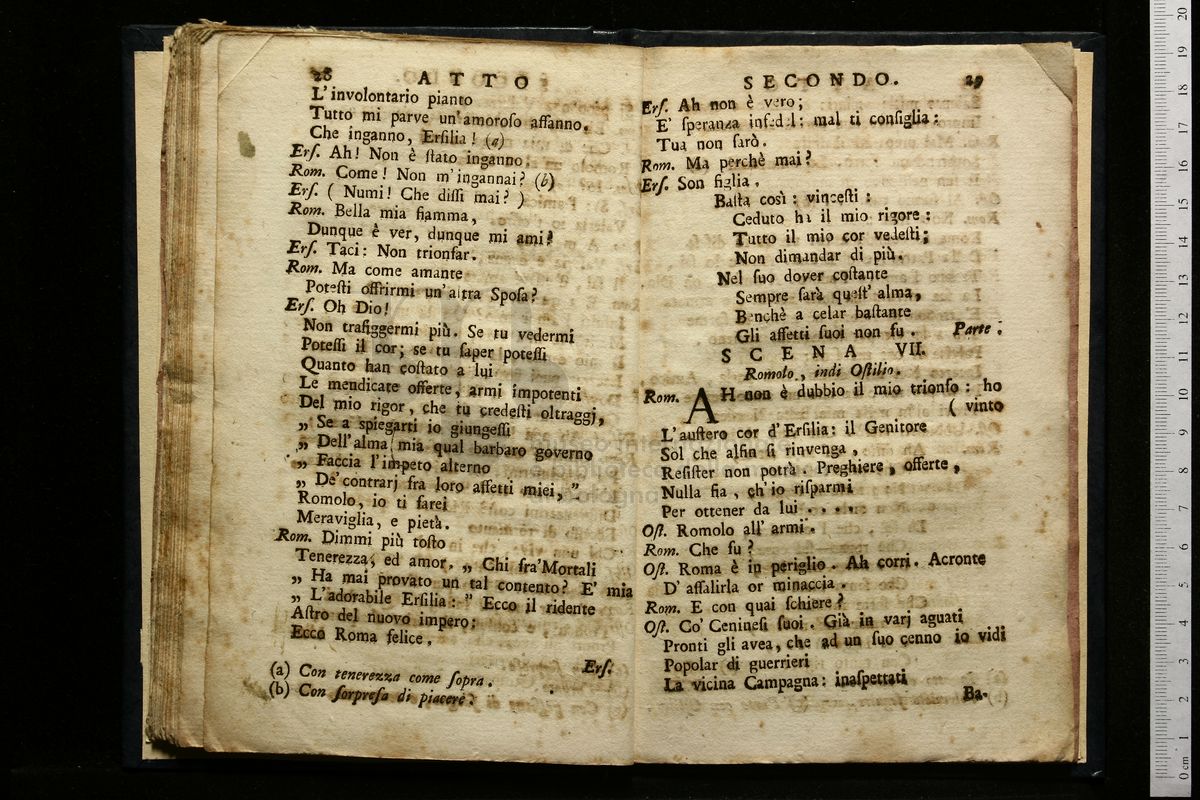 28 ATTO
L'involontario pianto
Tutto mi parve un'amoroſo affanno.
Che inganno, Erſilia! (a)
Erſ. Ah! Non è ſtato inganno.
Rom. Come! Non m'ingannai? (b)
Erſ. ( Numi! Che diſſi mai? )
Rom. Bella mia fiamma,
Dunque è ver, dunque mi ami?
Erſ. Taci: Non trionfar.
Rom. Ma come amante
Poteſti offrirmi un'altra Spoſa?
Erſ. Oh Dio!
Non trafiggermi più. Se tu vedermi
Poteſſi il cor; ſe tu ſaper poteſſi
Quanto han coſtato a lui
Le mendicate offerte, armi impotenti
Del mio rigor, che tu credeſti oltraggj,
„ Se a ſpiegarti io giungeſſi
„ Dell'alma mia qual barbaro governo
„ Faccia l'impeto alterno
„ De'contrarj fra loro affetti miei, ”
Romolo, io ti farei
Meraviglia, e pietà.
Rom. Dimmi più toſto
Tenerezza, ed amor. „ Chi fra'Mortali
„ Ha mai provato un tal contento? E' mia
„ L'adorabile Erſilia: ” Ecco il ridente
Aſtro del nuovo impero:
Ecco Roma felice.
Erſ.
(a) Con tenerezza come ſopra.
(b) Con ſorpreſa di piacere.
SECONDO. 29
Erſ. Ah non è vero;
E' ſperanza infedel: mal ti conſiglia:
Tua non ſarò.
Rom. Ma perchè mai?
Erſ. Son figlia.
Baſta così: vinceſti:
Ceduto ha il mio rigore:
Tutto il mio cor vedeſti;
Non dimandar di più.
Nel ſuo dover coſtante
Sempre ſarà queſt' alma,
Benchè a celar baſtante
Gli affetti ſuoi non fu. Parte.
SCENA VII.
Romolo, indi Oſtilio.
Rom. AH non è dubbio il mio trionfo: ho
( vinto
L'auſtero cor d'Erſilia: il Genitore
Sol che alfin ſi rinvenga,
Reſiſter non potrà. Preghiere, offerte,
Nulla fia, ch'io riſparmi
Per ottener da lui . . . .
Oſt. Romolo all' armi.
Rom. Che fu?
Oſt. Roma è in periglio. Ah corri. Acronte
D' aſſalirla or minaccia.
Rom. E con quai ſchiere?
Oſt. Co' Cenineſi ſuoi. Già in varj aguati
Pronti gli avea, che ad un ſuo cenno io vidi
Popolar di guerrieri
La vicina Campagna: inaſpettati
Ba-